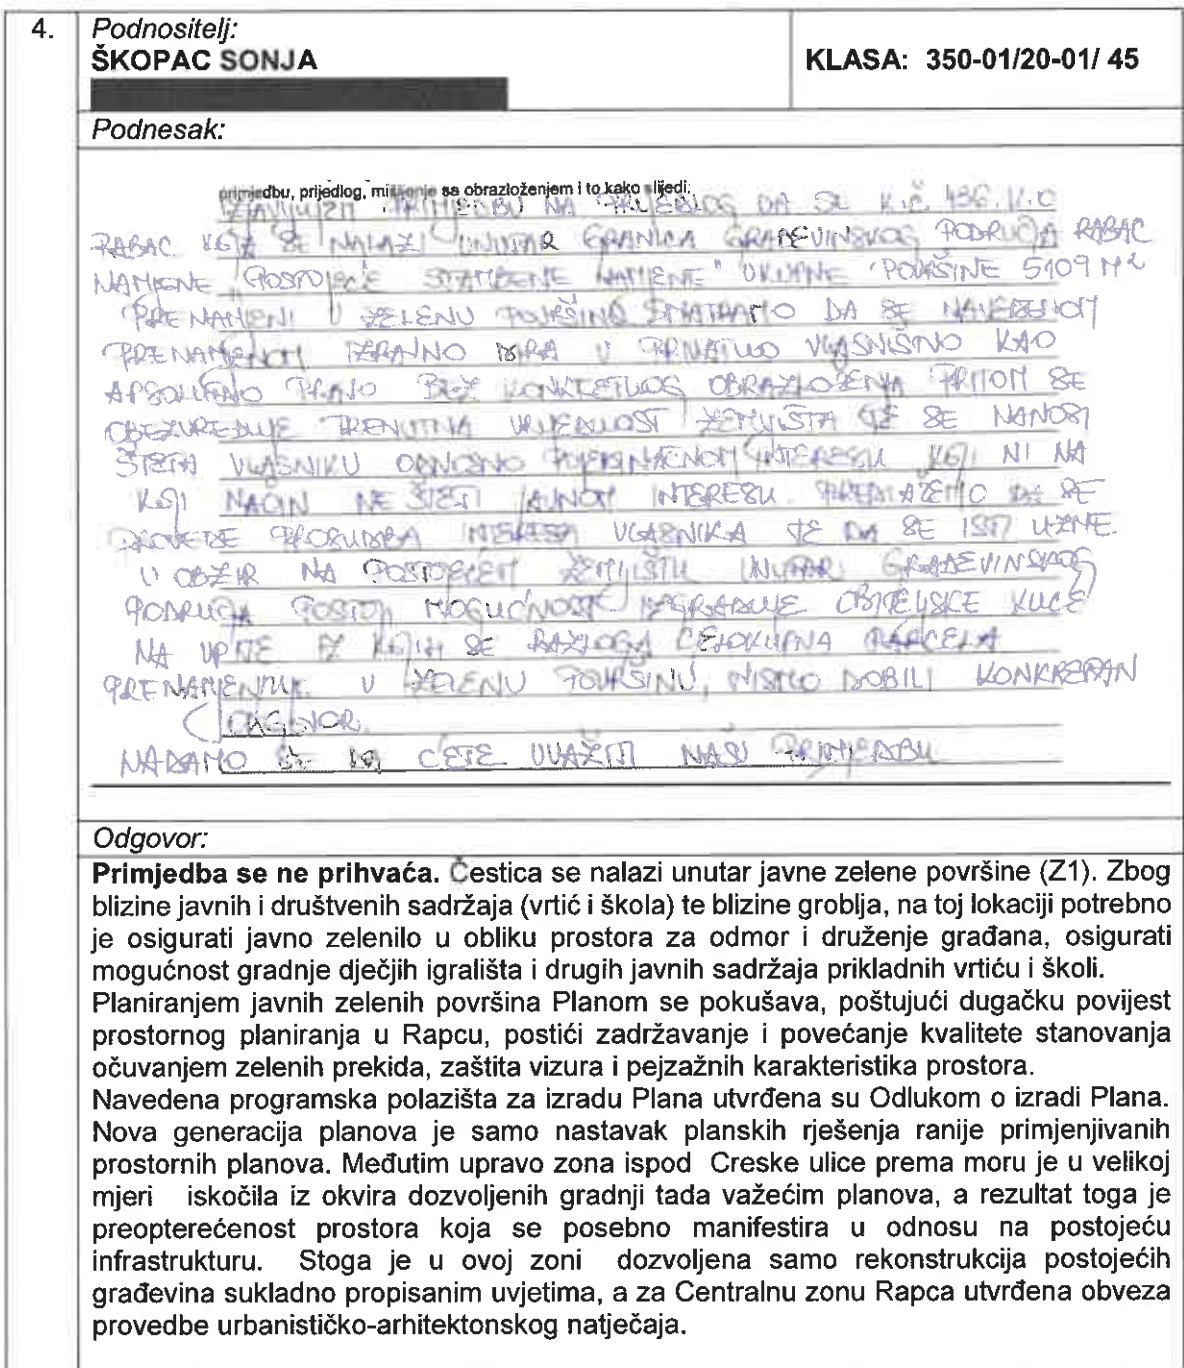 4.
Podnositelj:
ŠKOPAC SONJA
KLASA: 350-01/20-01/ 45
Podnesak:
primjedbu, prijedlog, mišljenje sa obrazloženjem i to kako slijedi:
PRIMJEDBU NA PRIJEDLOG DA SE K.Č. 436, K.O
RABAC KOJA SE NALAZI UNUTAR GRANICA GRAĐEVINSKOG PODRUČJA RABAC
NAMJENE "POSTOJEĆE STAMBENE NAMJENE" UKUPNE POVRŠINE 5109 M²
PRENAMJENI U ZELENU POVRŠINU SMATRAMO DA SE NAVEDENOM
PRENAMJENOM IZRAVNO DIRA U PRIVATNO VLASNIŠTVO KAO
APSOLUTNO PRAVO BEZ KONKRETNOG OBRAZLOŽENJA PRITOM SE
OBEZVREĐUJE TRENUTNA VRIJEDNOST ZEMLJIŠTA TE SE NANOSI
ŠTETA VLASNIKU ODNOSNO POJEDINAČNOM INTERESU KOJI NI NA
KOJI NAČIN NE ŠTETI JAVNOM INTERESU. PREDLAŽEMO DA SE
PROVEDE PROSUDBA INTERESA VLASNIKA TE DA SE ISTI UZME
U OBZIR NA POSTOJEĆEM ZEMLJIŠTU UNUTAR GRAĐEVINSKOG
PODRUČJA POSTOJI MOGUĆNOST IZGRADNJE OBITELJSKE KUĆE
NA UPITE IZ KOJIH SE RAZLOGA CJELOKUPNA PARCELA
U ZELENU POVRŠINU, NISMO DOBILI KONKRETAN
ODGOVOR.
NADAMO SE DA ĆETE UVAŽITI NAŠU PRIMJEDBU
Odgovor:
Primjedba se ne prihvaća. Čestica se nalazi unutar javne zelene površine (Z1). Zbog
blizine javnih i društvenih sadržaja (vrtić i škola) te blizine groblja, na toj lokaciji potrebno
je osigurati javno zelenilo u obliku prostora za odmor i druženje građana, osigurati
mogućnost gradnje dječjih igrališta i drugih javnih sadržaja prikladnih vrtiću i školi.
Planiranjem javnih zelenih površina Planom se pokušava, poštujući dugačku povijest
prostornog planiranja u Rapcu, postići zadržavanje i povećanje kvalitete stanovanja
očuvanjem zelenih prekida, zaštita vizura i pejzažnih karakteristika prostora.
Navedena programska polazišta za izradu Plana utvrđena su Odlukom o izradi Plana.
Nova generacija planova je samo nastavak planskih rješenja ranije primjenjivanih
prostornih planova. Međutim upravo zona ispod Creske ulice prema moru je u velikoj
mjeri iskočila iz okvira dozvoljenih gradnji tada važećim planova, a rezultat toga je
preopterećenost prostora koja se posebno manifestira u odnosu na postojeću
infrastrukturu. Stoga je u ovoj zoni dozvoljena samo rekonstrukcija postojećih
građevina sukladno propisanim uvjetima, a za Centralnu zonu Rapca utvrđena obveza
provedbe urbanističko-arhitektonskog natječaja.